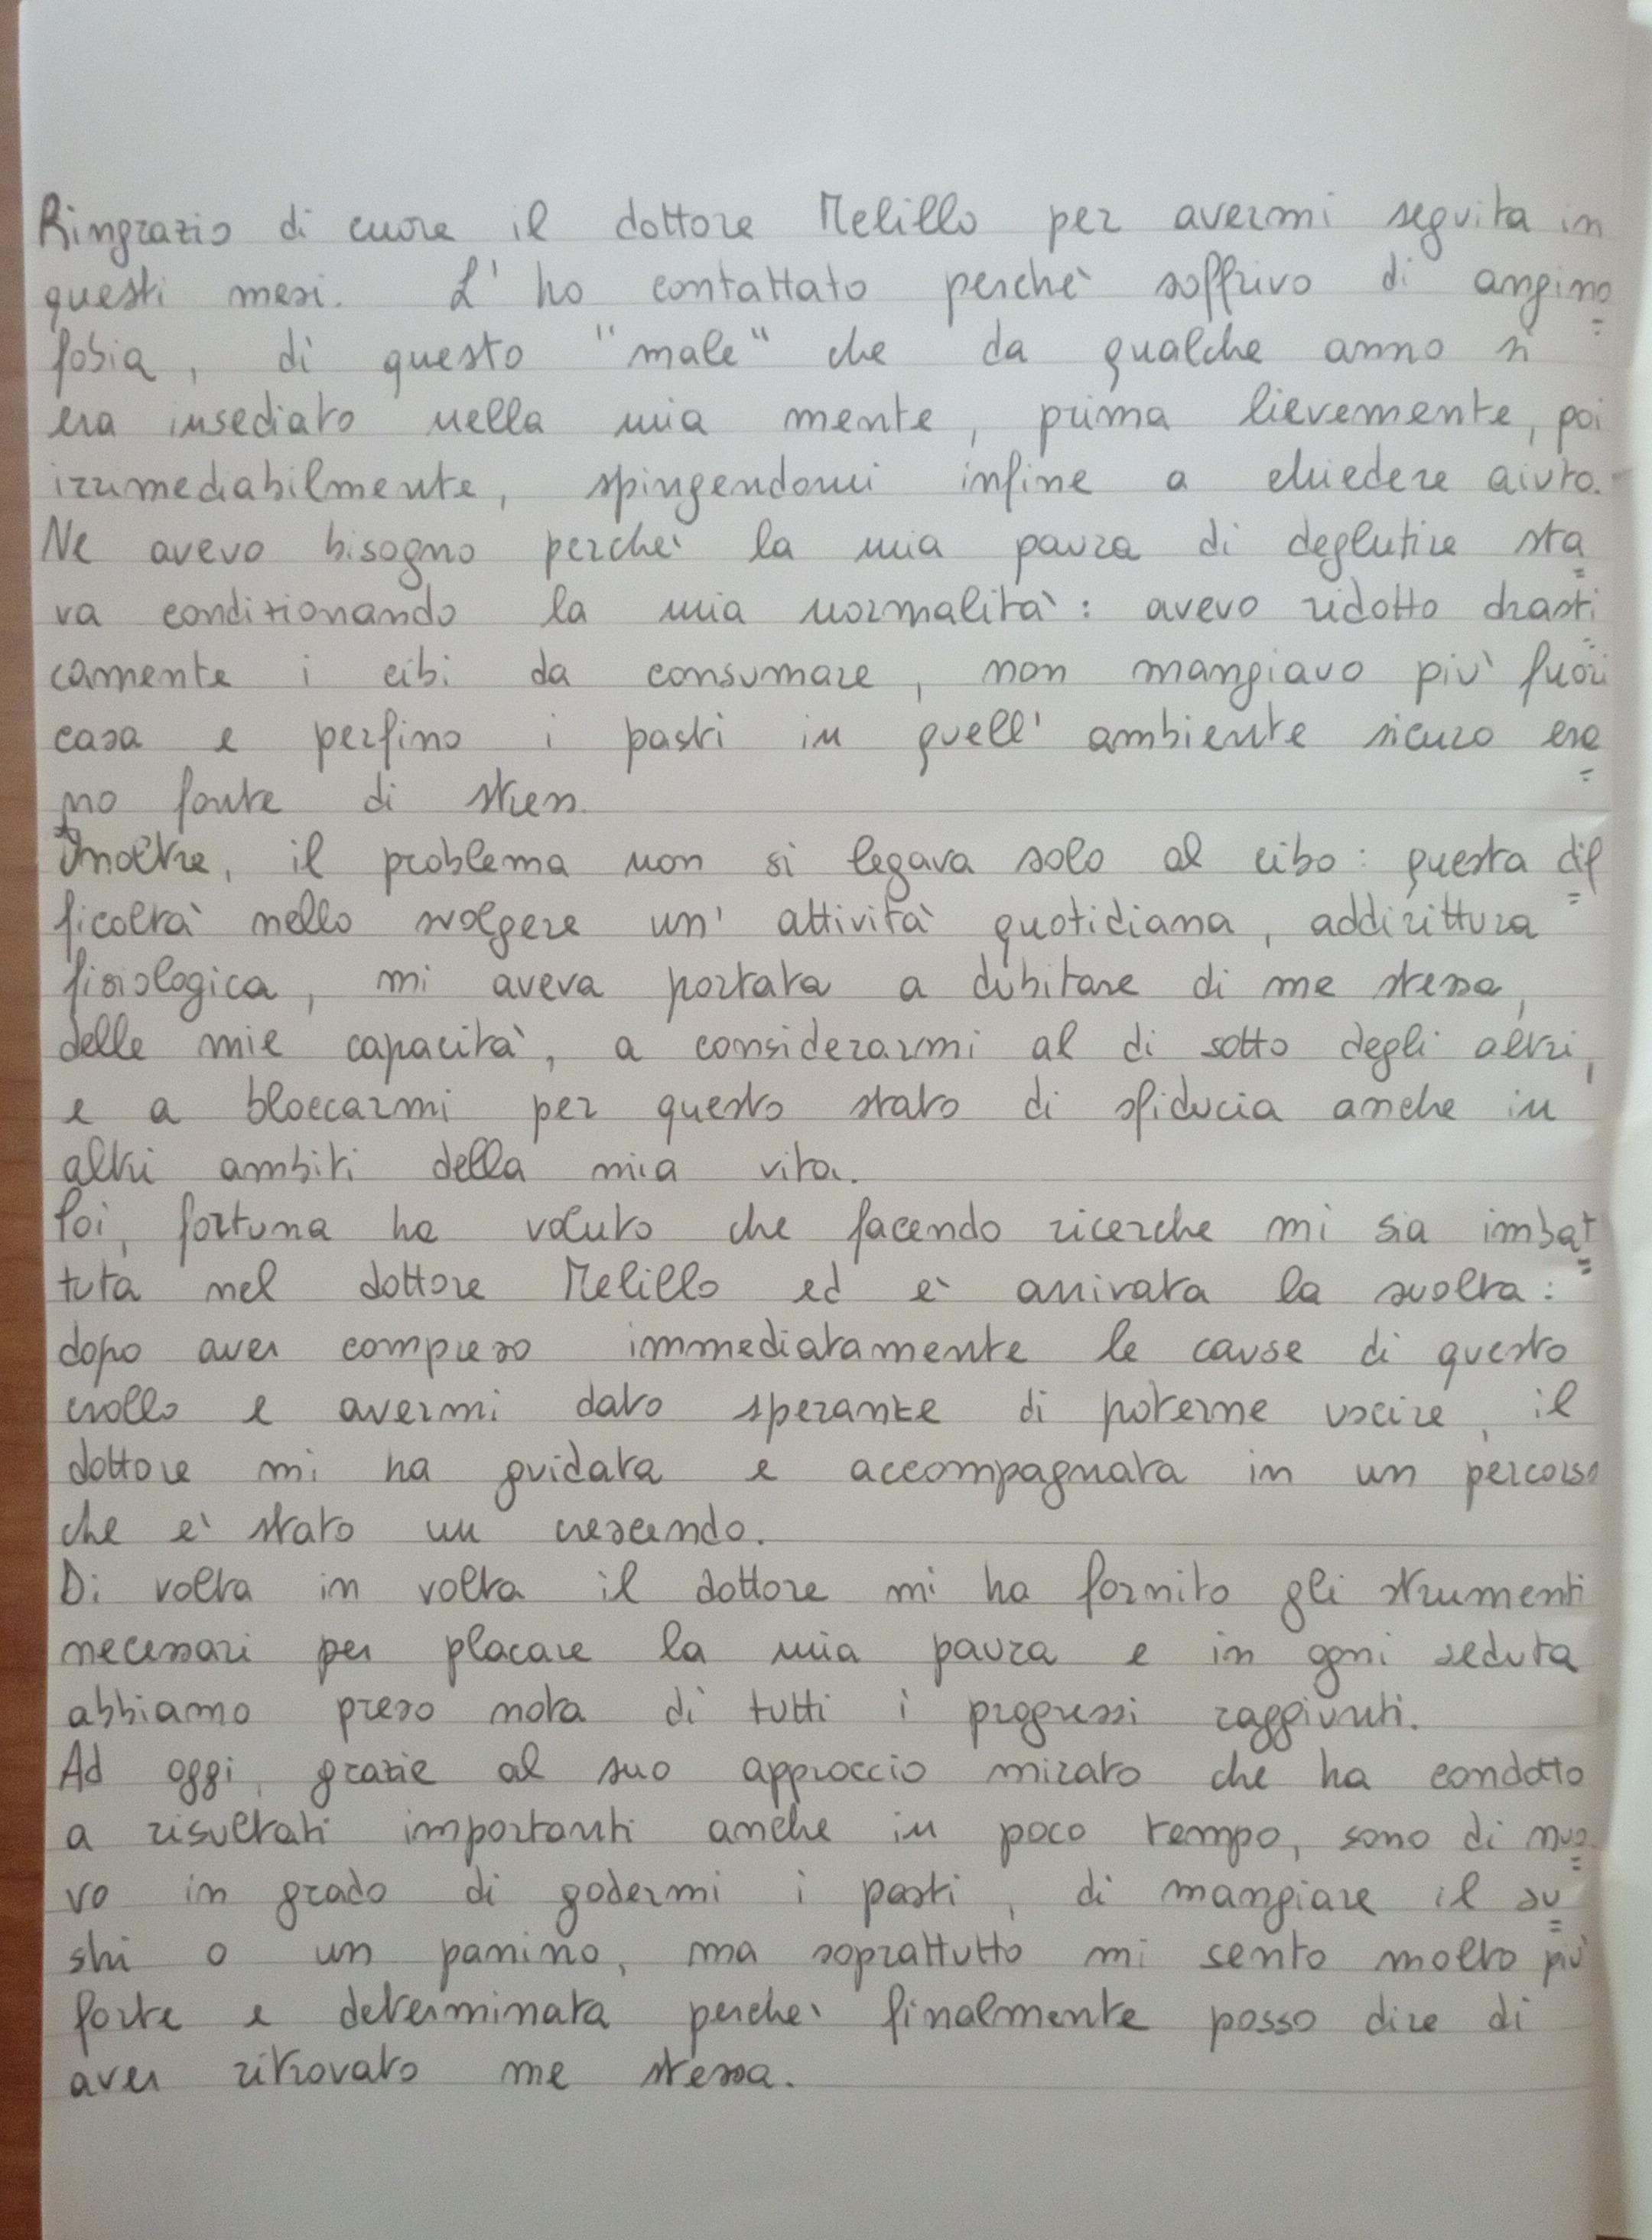 Ringrazio di cuore il dottore Melillo per avermi seguita in
questi mesi. L'ho contattato perchè soffrivo di angino=
fobia, di questo "male" che da qualche anno si
era insediato nella mia mente, prima lievemente, poi
irrimediabilmente, spingendomi infine a chiedere aiuto.
Ne avevo bisogno perchè la mia paura di deglutire sta=
va condizionando la mia normalità: avevo ridotto drasti=
camente i cibi da consumare, non mangiavo più fuori
casa e perfino i pasti in quell'ambiente sicuro era=
no fonte di stress.
Inoltre, il problema non si legava solo al cibo: questa dif=
ficoltà nello svolgere un'attività quotidiana, addirittura
fisiologica, mi aveva portata a dubitare di me stessa,
delle mie capacità, a considerarmi al di sotto degli altri,
e a bloccarmi per questo stato di sfiducia anche in
altri ambiti della mia vita.
Poi, fortuna ha voluto che facendo ricerche mi sia imbat=
tuta nel dottore Melillo ed è arrivata la svolta:
dopo aver compreso immediatamente le cause di questo
crollo e avermi dato speranze di poterne uscire, il
dottore mi ha guidata e accompagnata in un percorso
che è stato un crescendo.
Di volta in volta il dottore mi ha fornito gli strumenti
necessari per placare la mia paura e in ogni seduta
abbiamo preso nota di tutti i progressi raggiunti.
Ad oggi, grazie al suo approccio mirato che ha condotto
a risultati importanti anche in poco tempo, sono di nuo=
vo in grado di godermi i pasti, di mangiare il su=
shi o un panino, ma soprattutto mi sento molto più
forte e determinata perchè finalmente posso dire di
aver ritrovato me stessa.